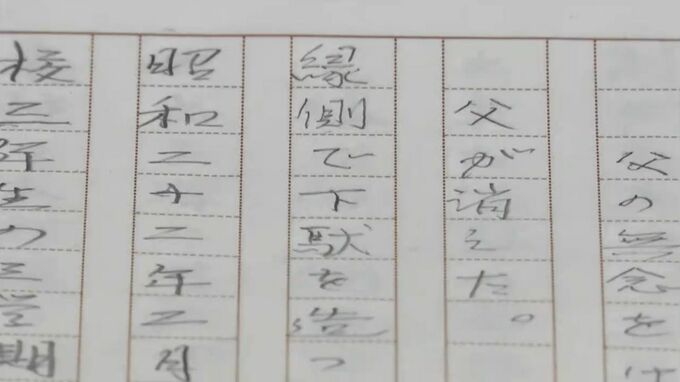 父の無念を
父が消えた。
縁側で下駄を造っ
昭和二十二年二月
校三年生の三学期